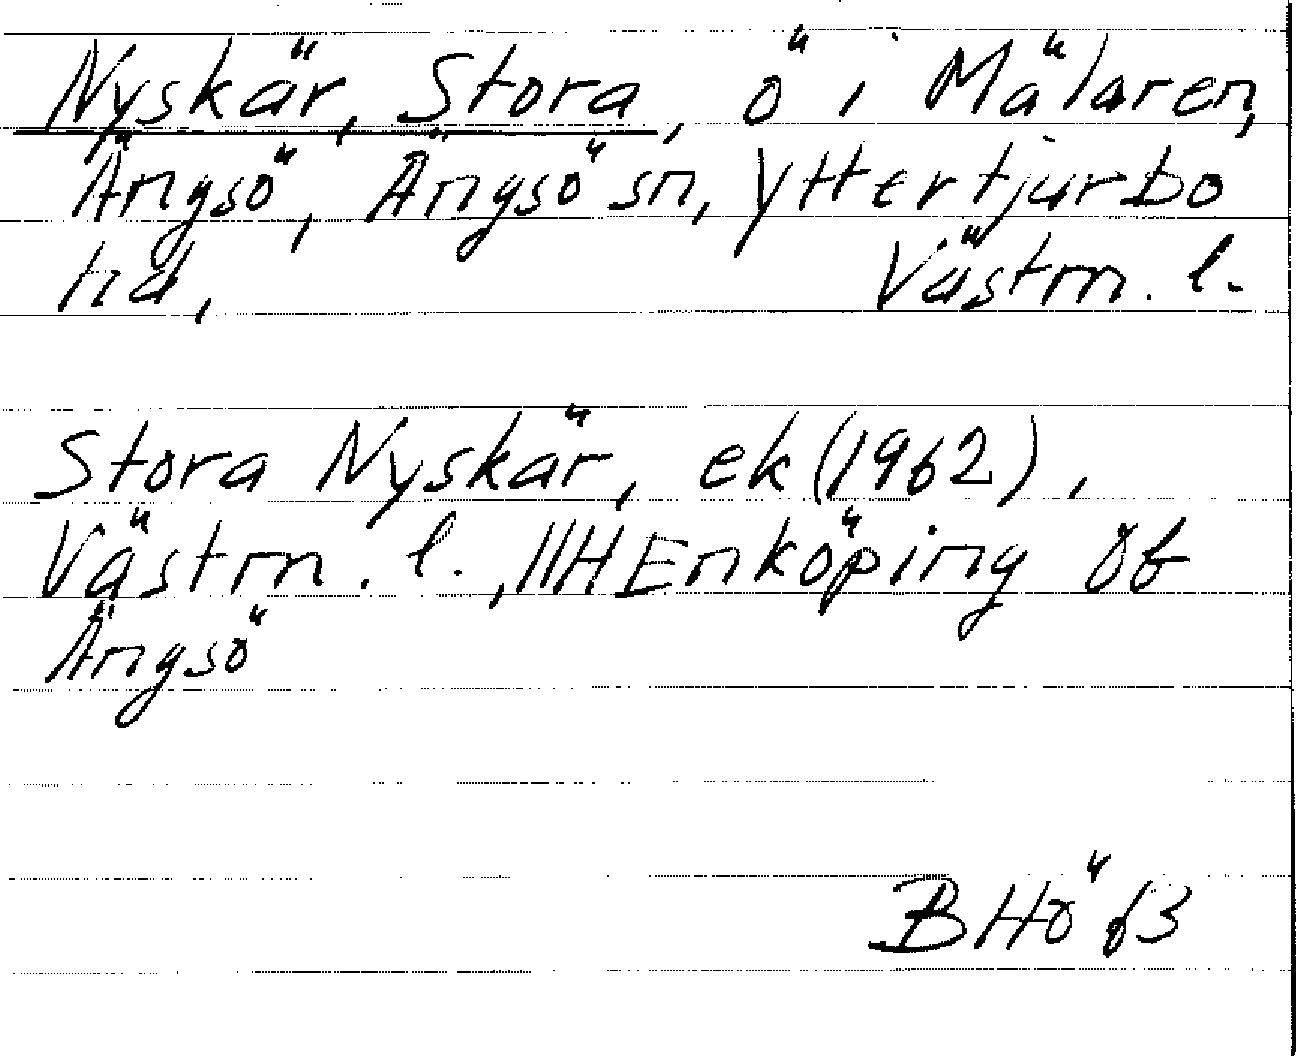 Nyskär, Stora, ö i Mälaren,
Ängsö, Ängsö sn, Yttertjurbo
hd, Västm. l.
Stora Nyskär, ek (1962),
Västm. l., 11H Enköping 0f
Ängsö
BHö 63